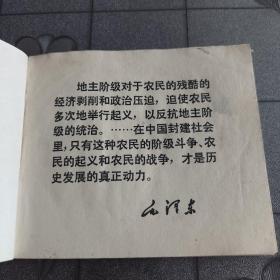 地主阶级对于农民的残酷的
经济剥削和政治压迫，迫使农民
多次地举行起义，以反抗地主阶
级的统治。……在中国封建社会
里，只有这种农民的阶级斗争、农
民的起义和农民的战争，才是历
史发展的真正动力。
毛泽东